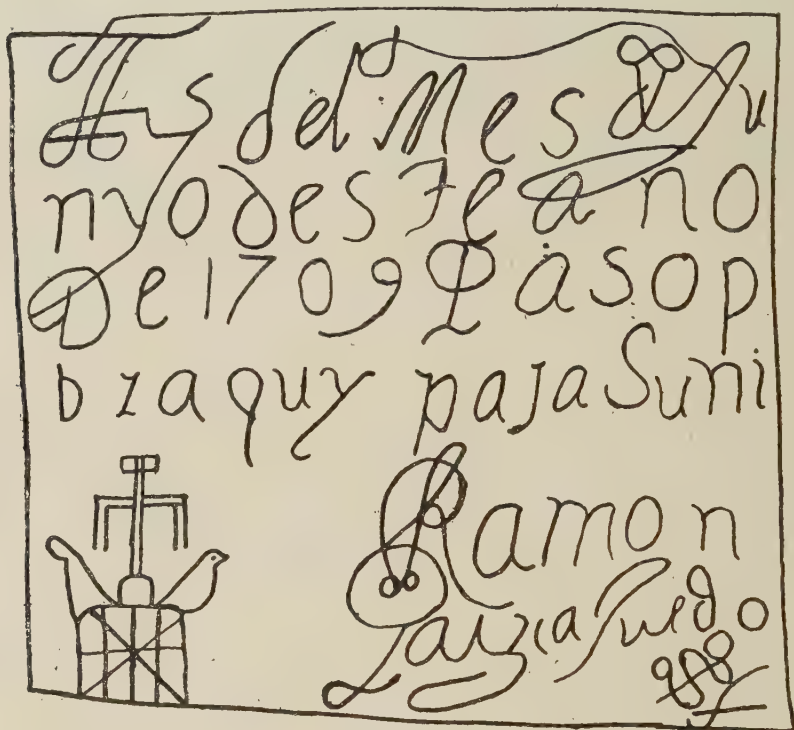 A 25 del Mes de Ju
nyo deste ano
De 1709 Paso p
or aquy para Suni
Ramon
Garzia Jurado